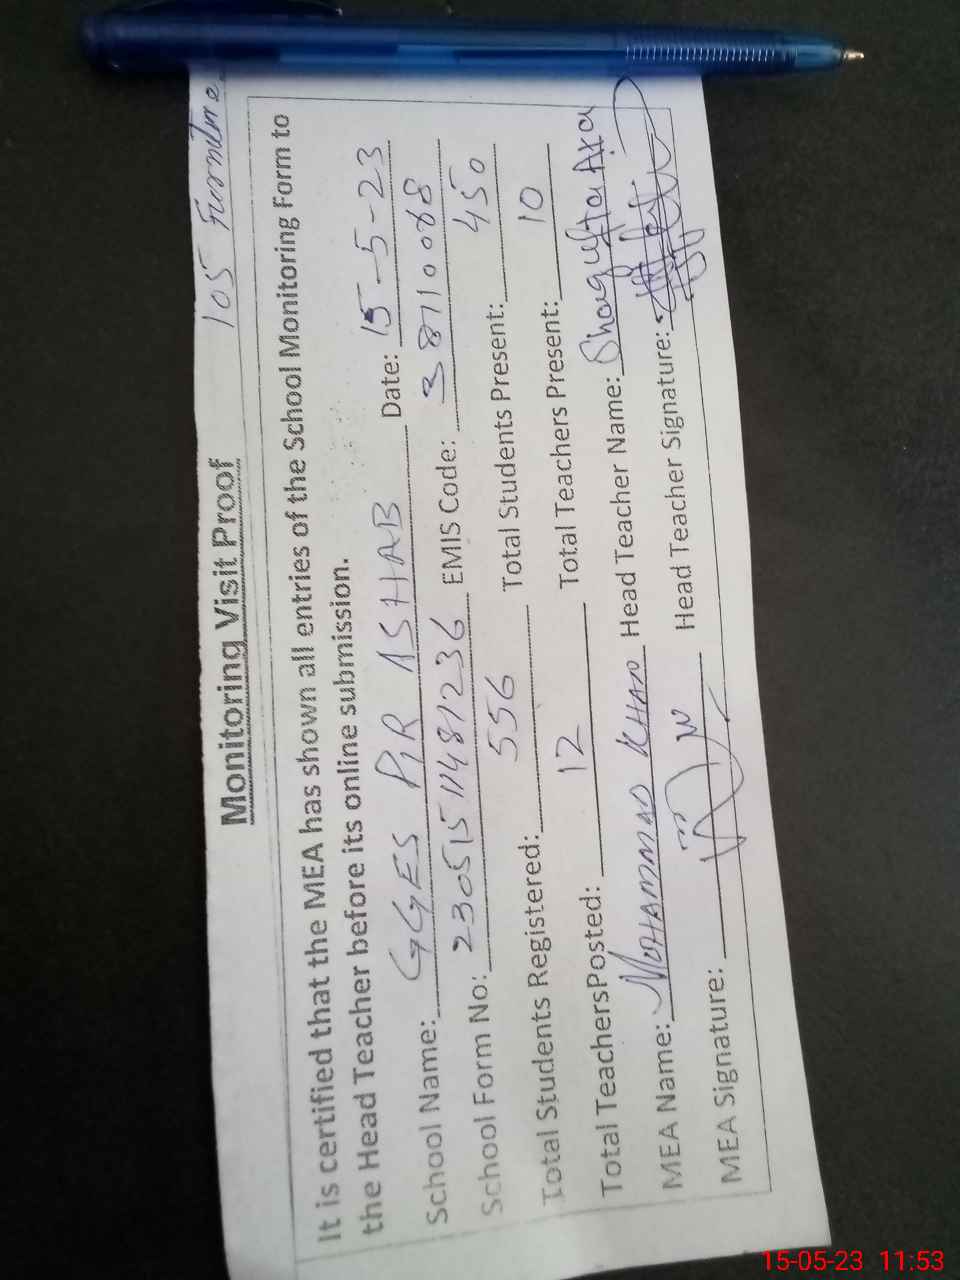 105 Furniture
Monitoring Visit Proof
It is certified that the MEA has shown all entries of the School Monitoring Form to
the Head Teacher before its online submission.
School Name: GGES PIR ASHAB Date: 15-5-23
School Form No: 23051511481236 EMIS Code: 38110068
Total Students Registered: 556 Total Students Present: 450
Total TeachersPosted: 12 Total Teachers Present: 10
MEA Name: MOHAMMAD KHAN Head Teacher Name: Shagufta Ara
MEA Signature: Head Teacher Signature:
15-05-23 11:53